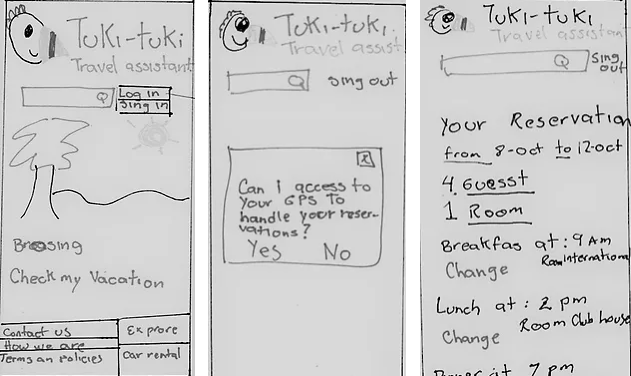 Tuki-tuki
Travel assistant
Log in
Sing in
Browsing
Check my Vacation
Contact us
How we are
Terms an policies
Exprore
Car rental
Tuki-tuki
Travel assistan
Sing out
X
Can i access to
your GPS to
handle your reser-
vations?
Yes No
Tuki-tuki
Travel assistan
Sing
out
Your Reservation
from 8-oct to 12-oct
4 Guesst
1 Room
Breakfas at: 9 AM
Room International
Change
Lunch at: 2 pm
Room Club house
Change
Dinner at 7 pm